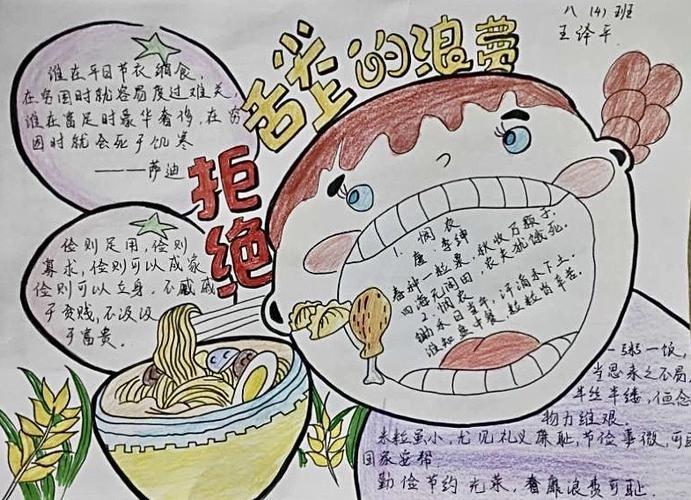 八(4)班
王绎平
拒绝
舌尖上的浪费
谁在平日节衣缩食,
在穷困时就容易度过难关,
谁在富足时豪华奢侈,在穷
困时就会死于饥寒
——萨迪
俭则足用,俭则
寡求,俭则可以成家
俭则可以立身。不戚戚
于贫贱,不汲汲
于富贵。
1. 悯农
唐·李绅
春种一粒粟,秋收万颗子.
四海无闲田,农夫犹饿死.
2. 悯农
锄禾日当午,汗滴禾下土.
谁知盘中餐,粒粒皆辛苦.
一粥一饭,
当思来之不易,
半丝半缕,恒念
物力维艰.
米粒虽小,尤见礼义廉耻,节俭事微,可
国家安帮
勤俭节约光荣,奢靡浪费可耻